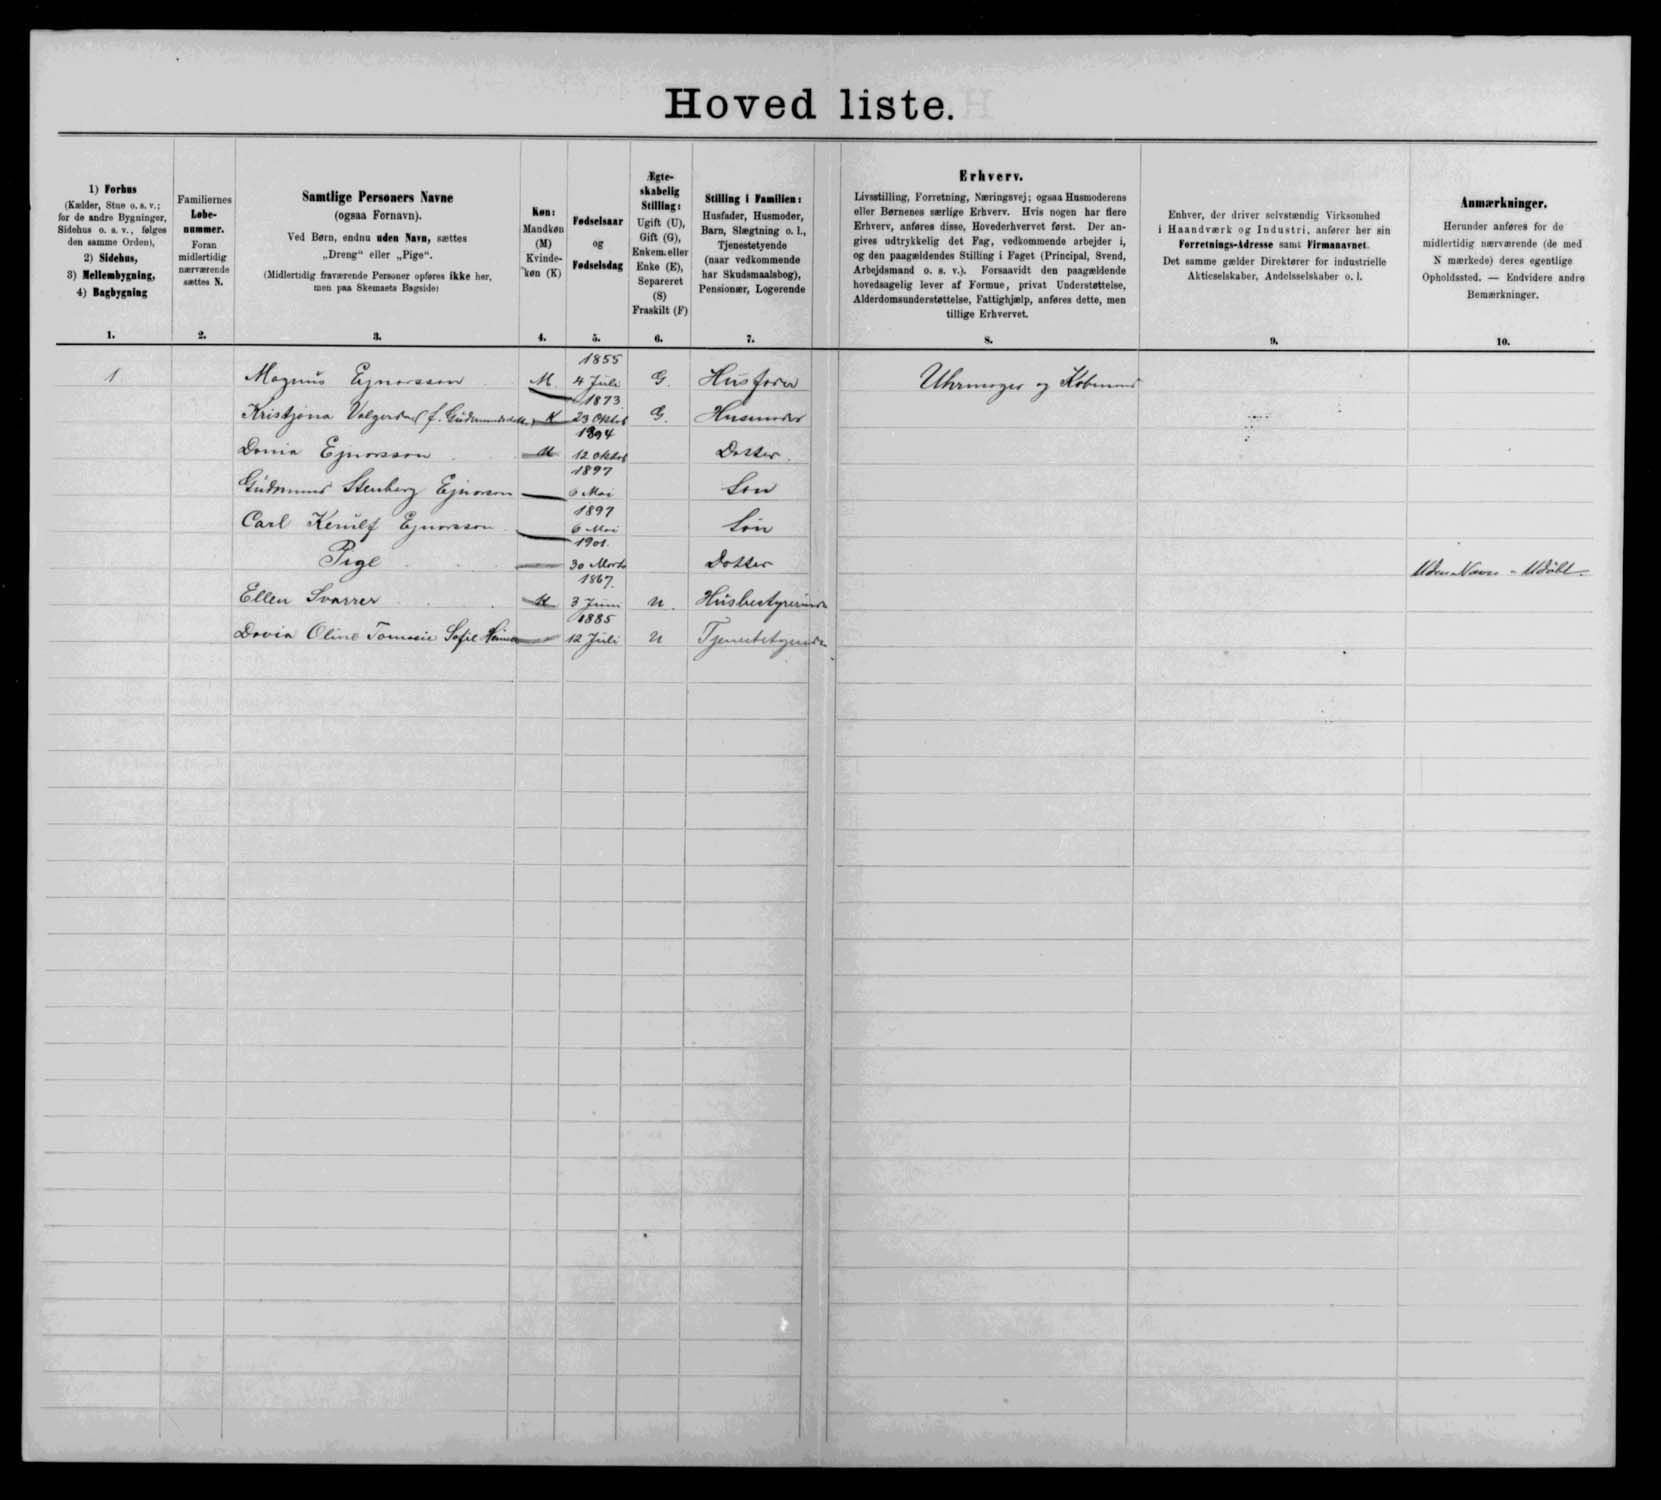 Hoved liste.
1) Forhus
(Kælder, Stue o. s. v.;
for de andre Bygninger,
Sidehus o. s. v., følges
den samme Orden),
2) Sidehus,
3) Mellembygning,
4) Bagbygning
1.
Familiernes
Løbe-
nummer.
Foran
midlertidig
nærværende
sættes N.
2.
Samtlige Personers Navne
(ogsaa Fornavn).
Ved Børn, endnu uden Navn, sættes
„Dreng“ eller „Pige“.
(Midlertidig fraværende Personer opføres ikke her,
men paa Skemaets Bagside)
3.
Køn:
Mandkøn
(M)
Kvinde-
køn (K)
4.
Fødselsaar
og
Fødselsdag
5.
Ægte-
skabelig
Stilling:
Ugift (U),
Gift (G),
Enkem. eller
Enke (E),
Separeret
(S)
Fraskilt (F)
6.
Stilling i Familien:
Husfader, Husmoder,
Barn, Slægtning o. l.,
Tjenestetyende
(naar vedkommende
har Skudsmaalsbog),
Pensionær, Logerende
7.
Erhverv.
Livsstilling, Forretning, Næringsvej; ogsaa Husmoderens
eller Børnenes særlige Erhverv. Hvis nogen har flere
Erhverv, anføres disse, Hovederhvervet først. Der an-
gives udtrykkelig det Fag, vedkommende arbejder i,
og den paagældendes Stilling i Faget (Principal, Svend,
Arbejdsmand o. s. v.). Forsaavidt den paagældende
hovedsagelig lever af Formue, privat Understøttelse,
Alderdomsunderstøttelse, Fattighjælp, anføres dette, men
tillige Erhvervet.
8.
Enhver, der driver selvstændig Virksomhed
i Haandværk og Industri, anfører her sin
Forretnings-Adresse samt Firmanavnet.
Det samme gælder Direktører for industrielle
Aktieselskaber, Andelsselskaber o. l.
9.
Anmærkninger.
Herunder anføres for de
midlertidig nærværende (de med
N mærkede) deres egentlige
Opholdssted. — Endvidere andre
Bemærkninger.
10.
1 Magnus Ejnarsson M 1855 4 Juli G. Husfader Uhrmager og Købmand
Kristjana Valgerdur f. K 1873 23 Oktob G. Husmoder
Ejnarsson K 1894 12 Oktob Datter
Gudmund Stenberg Ejnarson 1897 6 Mai Søn
Carl Kerulf Ejnarsson 1897 6 Mai Søn
Pige 1901. 30 Marts Datter Uden Navn - Udøbt.
Ellen Svarrer K 1867. 3 Juni U. Husbestyrerinde
Oline Sofie 1885 12 Juli U Tjenestetyende